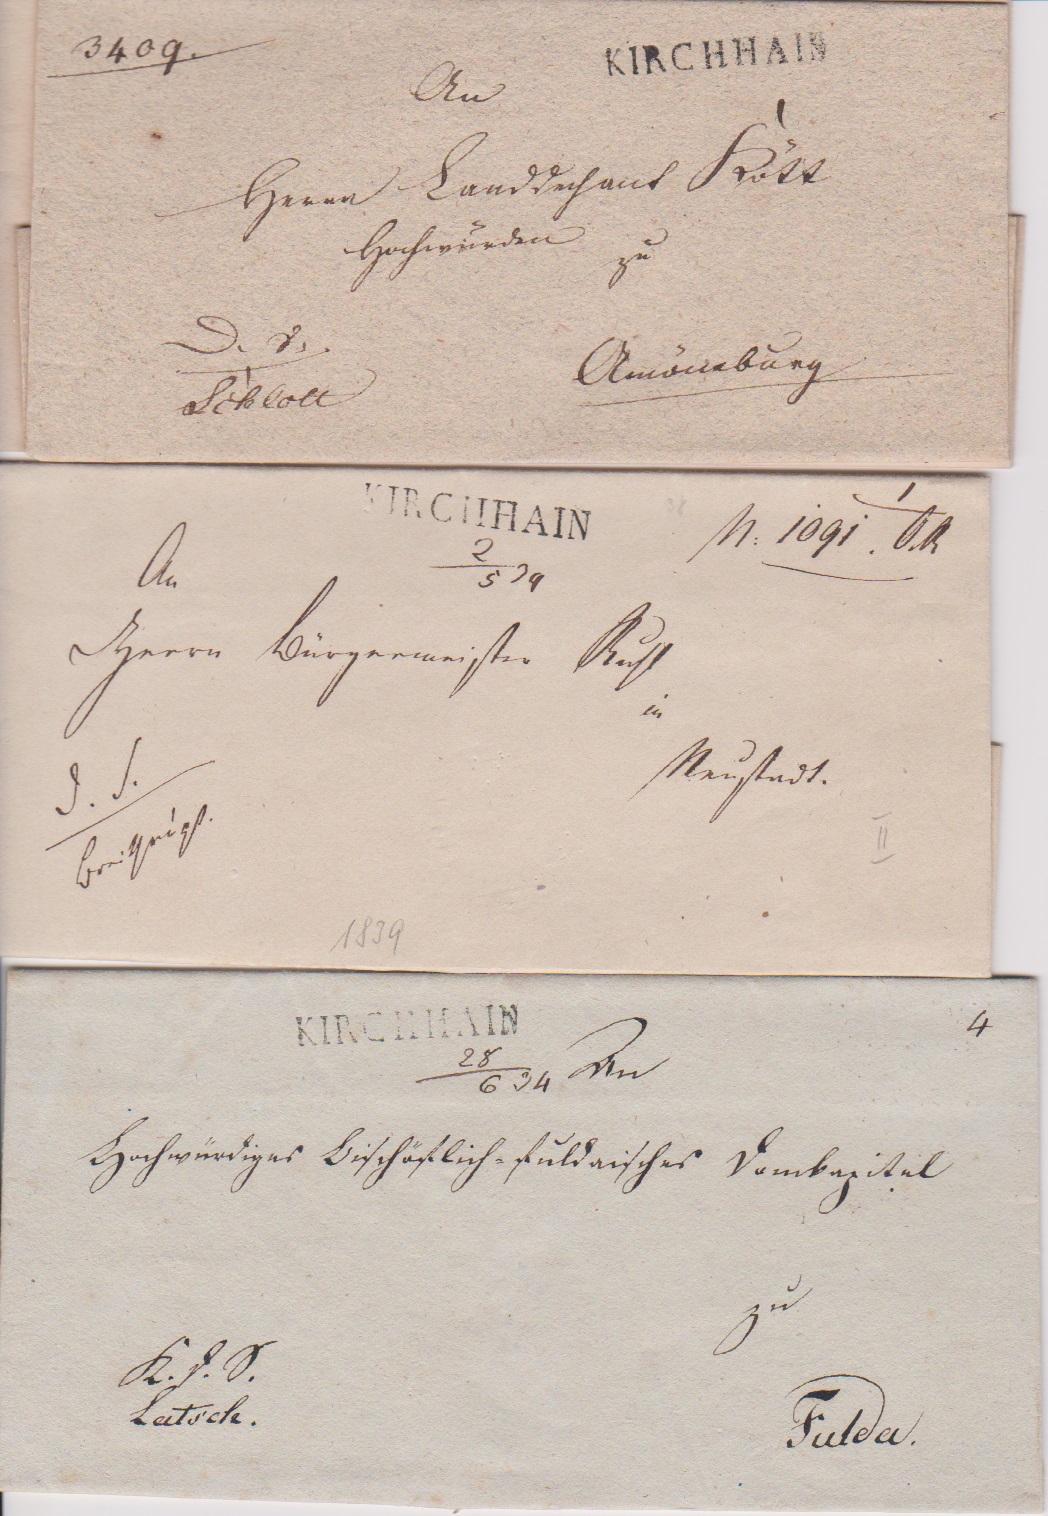 3409.
KIRCHHAIN
An
Herrn Landdechant Kött
Hochwürden
zu
D. S.
Schlott
Amöneburg
KIRCHHAIN
2
5 39
N: 1091.
An
Herrn Bürgermeister Ruhl
in
Neustadt.
D. S.
II
1839
KIRCHHAIN
28
6 34
4
An
Hochwürdiges Bischöflich-fuldaisches Domkapitel
zu
K. D. S.
Latsch.
Fulda.